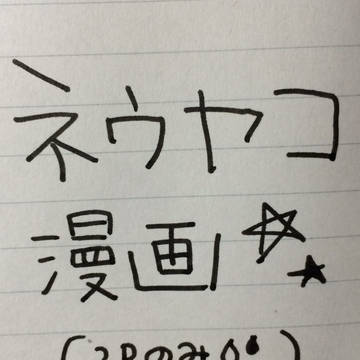 ネウヤコ
漫画☆★
(2Pのみ